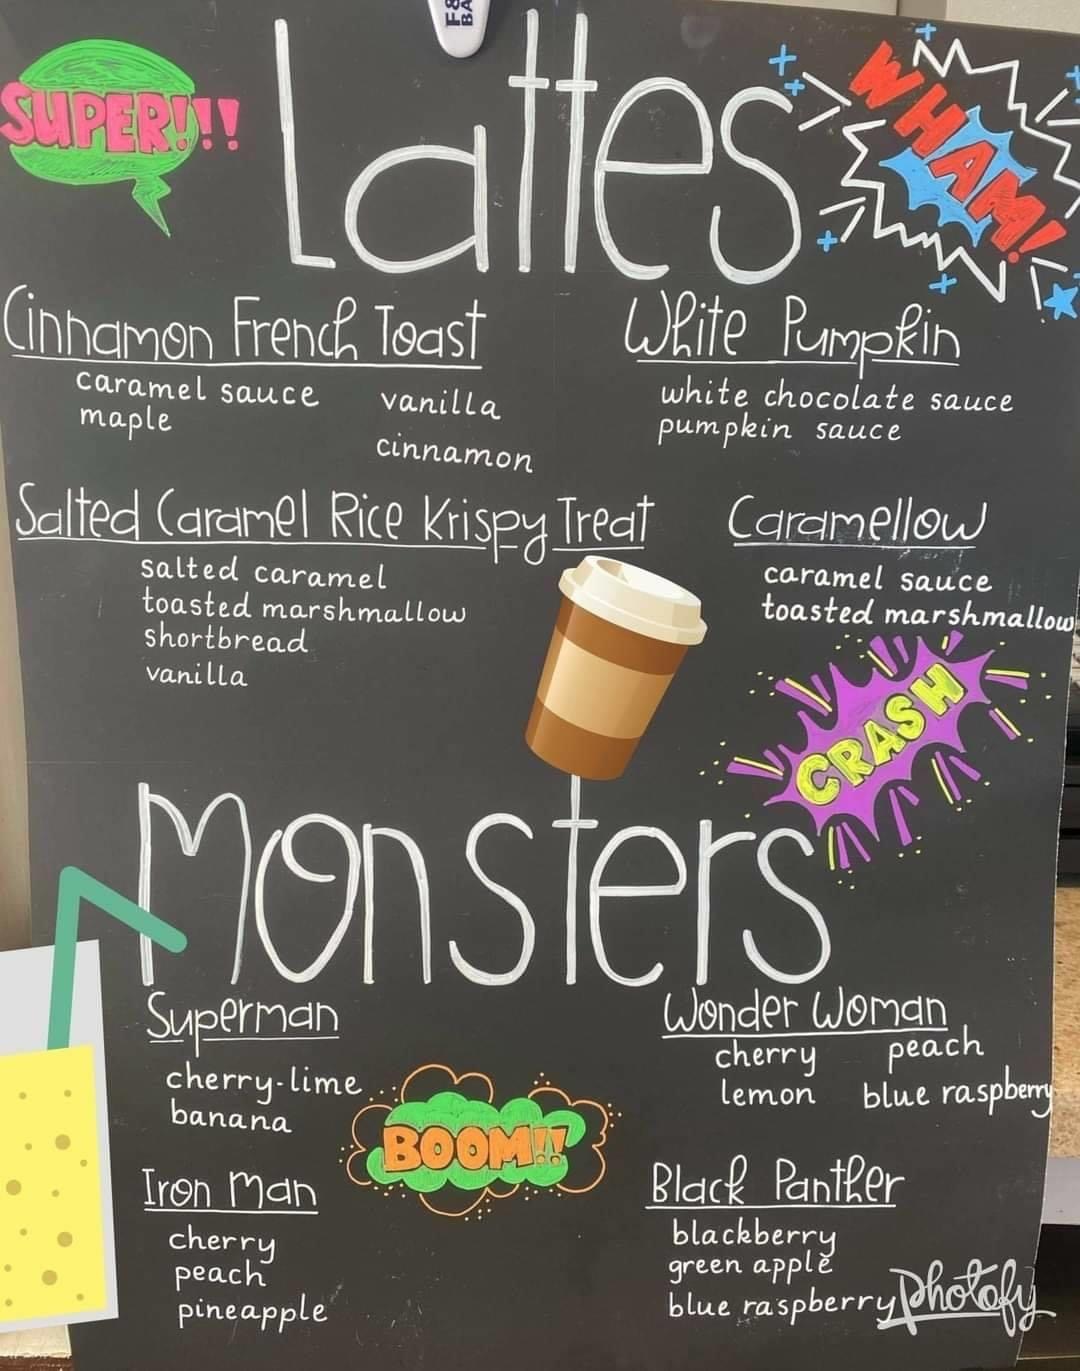 F&
BA
SUPER!!!
Lattes
WHAM!
Cinnamon French Toast
caramel sauce
maple
vanilla
cinnamon
White Pumpkin
white chocolate sauce
pumpkin sauce
Salted Caramel Rice Krispy Treat
salted caramel
toasted marshmallow
shortbread
vanilla
Caramellow
caramel sauce
toasted marshmallow
CRASH
Monsters
Superman
cherry-lime
banana
Wonder Woman
cherry peach
lemon blue raspberry
BOOM!!
Iron Man
cherry
peach
pineapple
Black Panther
blackberry
green apple
blue raspberry
Photofy